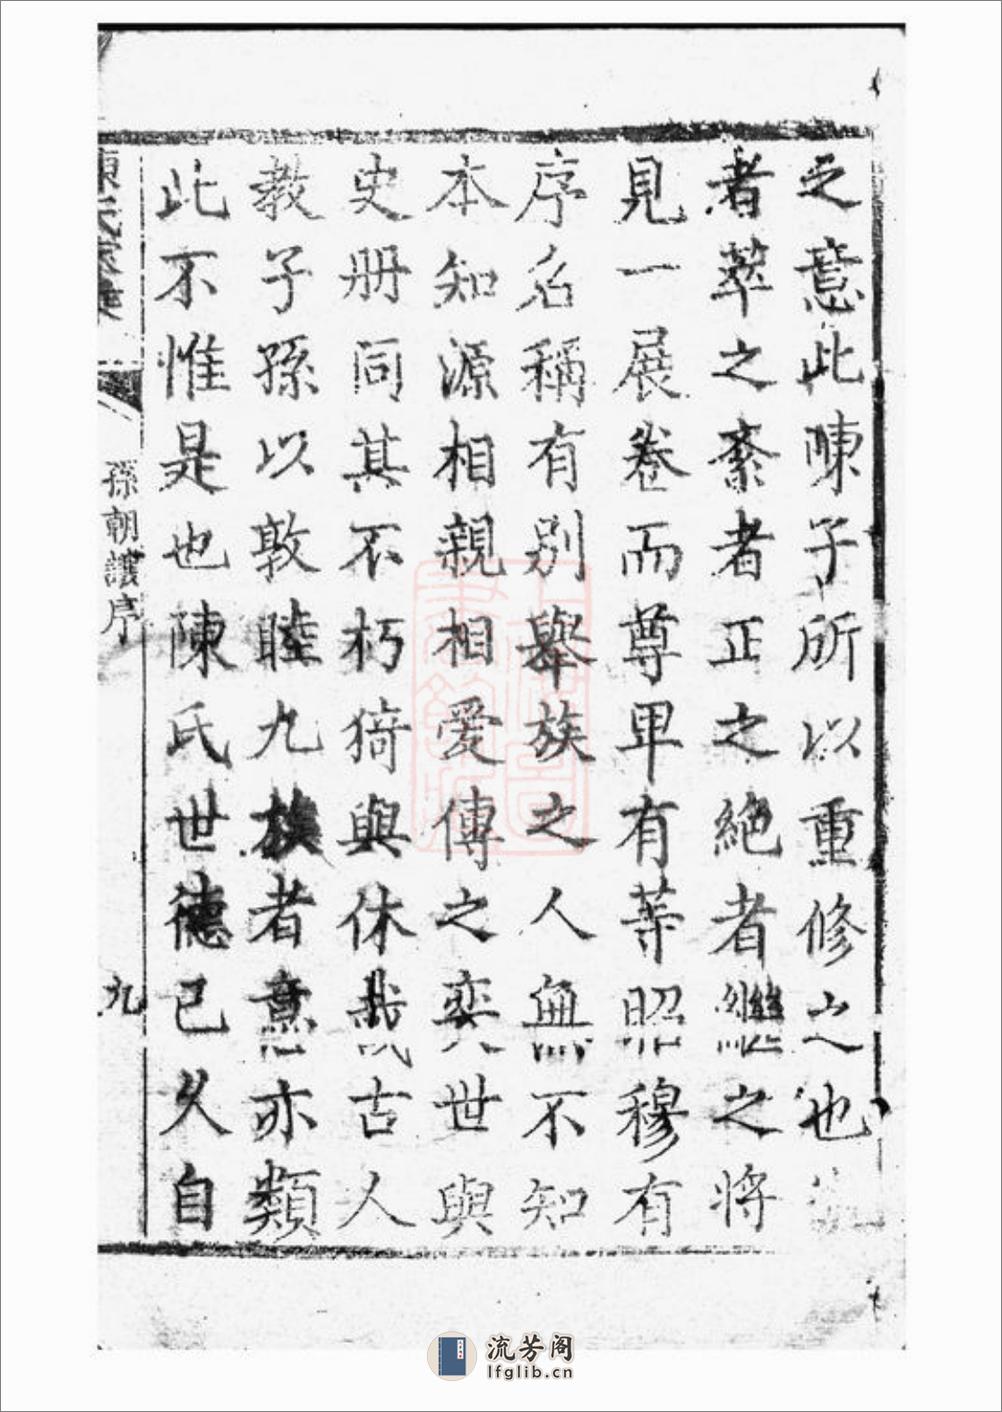 之意此陳子所以重修之也
者萃之紊者正之絕者繼之將
見一展卷而尊卑有等昭穆有
序名稱有別舉族之人無不知
本知源相親相愛傳之奕世與
史册同其不朽猗與休哉古人
教子孫以敦睦九族者意亦類
此不惟是也陳氏世德已久自
孫朝讓序
九
流芳阁
lfglib.cn